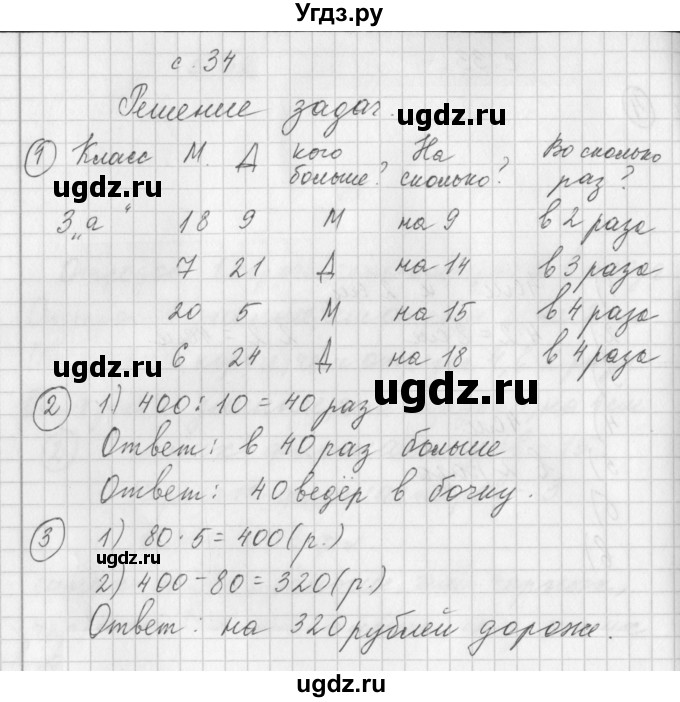 Угдз.ру
с. 34
Решение задач.
ugdz.ru
1 Класс М. Д кого больше? На сколько? Во сколько раз?
ugdz.ru
ugdz.ru
3 „а“ 18 9 М на 9 в 2 раза
7 21 Д на 14 в 3 раза
20 5 М на 15 в 4 раза
6 24 Д на 18 в 4 раза
ugdz.ru
ugdz.ru
2 1) 400 : 10 = 40 раз
Ответ: в 40 раз больше
Ответ: 40 ведёр в бочку.
3 1) 80 · 5 = 400 (р.)
ugdz.ru
2) 400 - 80 = 320 (р.)
Ответ: на 320 рублей дороже.
ugdz.ru